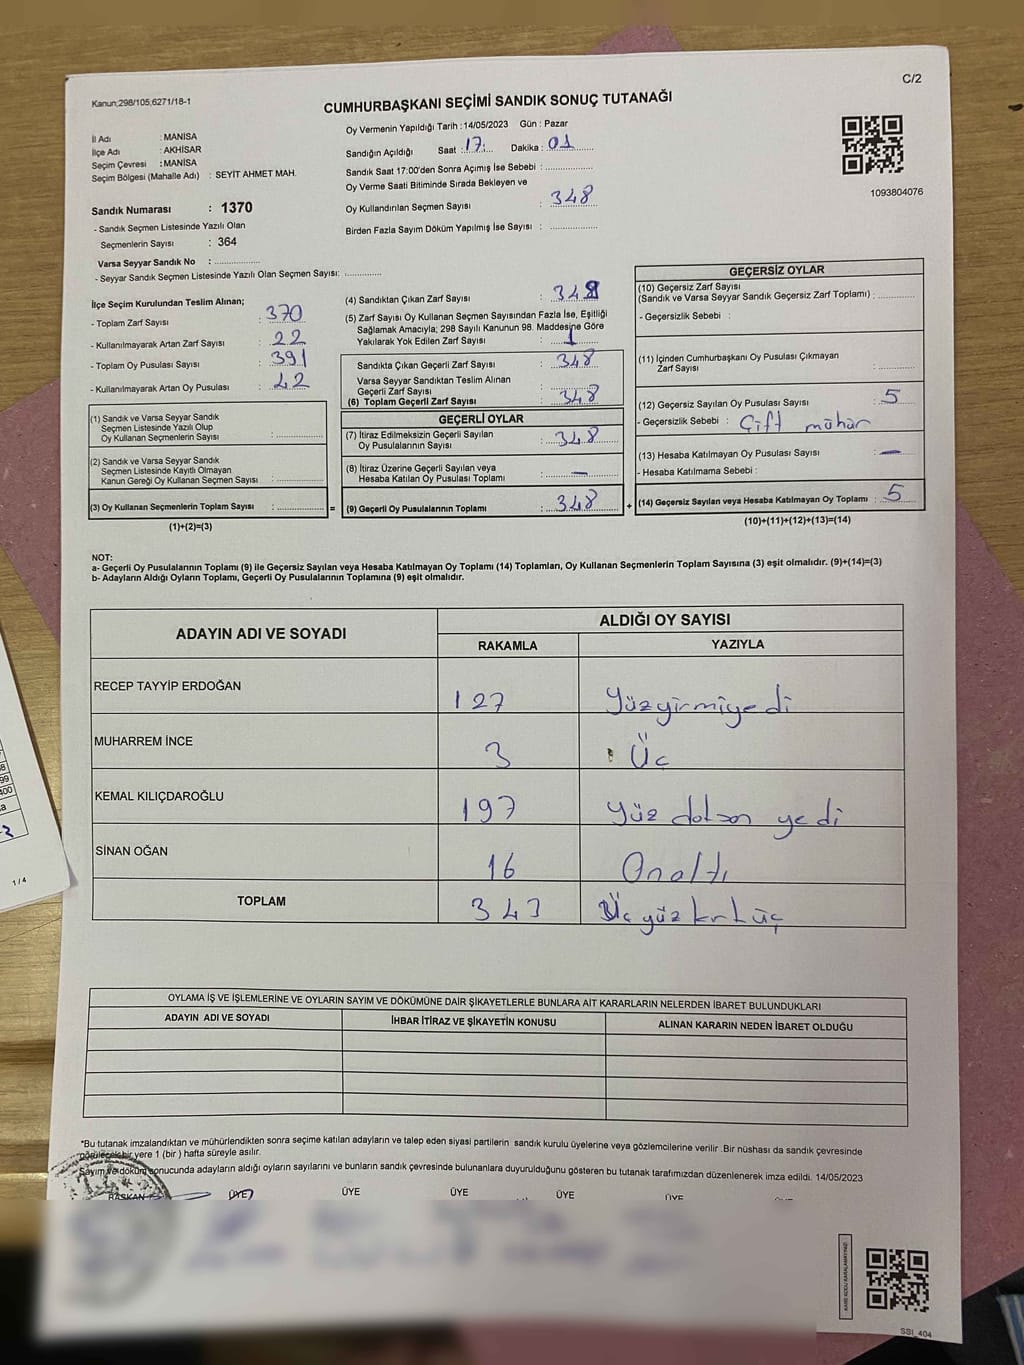 C/2
Kanun;298/105;6271/18-1
CUMHURBAŞKANI SEÇİMİ SANDIK SONUÇ TUTANAĞI
İl Adı : MANİSA
İlçe Adı : AKHİSAR
Seçim Çevresi : MANİSA
Seçim Bölgesi (Mahalle Adı) : SEYİT AHMET MAH.
Sandık Numarası : 1370
- Sandık Seçmen Listesinde Yazılı Olan
Seçmenlerin Sayısı : 364
Varsa Seyyar Sandık No : ................
- Seyyar Sandık Seçmen Listesinde Yazılı Olan Seçmen Sayısı: .............
Oy Vermenin Yapıldığı Tarih : 14/05/2023 Gün : Pazar
Sandığın Açıldığı Saat : 17: Dakika : 01
Sandık Saat 17:00'den Sonra Açımış İse Sebebi : ................
Oy Verme Saati Bitiminde Sırada Bekleyen ve
Oy Kullandırılan Seçmen Sayısı : 348
Birden Fazla Sayım Döküm Yapılmış İse Sayısı : ................
1093804076
İlçe Seçim Kurulundan Teslim Alınan;
- Toplam Zarf Sayısı : 370
- Kullanılmayarak Artan Zarf Sayısı : 22
- Toplam Oy Pusulası Sayısı : 391
- Kullanılmayarak Artan Oy Pusulası : 42
(1) Sandık ve Varsa Seyyar Sandık
Seçmen Listesinde Yazılı Olup
Oy Kullanan Seçmenlerin Sayısı : ................
(2) Sandık ve Varsa Seyyar Sandık
Seçmen Listesinde Kayıtlı Olmayan
Kanun Gereği Oy Kullanan Seçmen Sayısı : ................
(3) Oy Kullanan Seçmenlerin Toplam Sayısı : ................ =
(1)+(2)=(3)
(4) Sandıktan Çıkan Zarf Sayısı : 348
(5) Zarf Sayısı Oy Kullanan Seçmen Sayısından Fazla İse, Eşitliği
Sağlamak Amacıyla; 298 Sayılı Kanunun 98. Maddesine Göre
Yakılarak Yok Edilen Zarf Sayısı : 1
Sandıkta Çıkan Geçerli Zarf Sayısı : 348
Varsa Seyyar Sandıktan Teslim Alınan
Geçerli Zarf Sayısı
(6) Toplam Geçerli Zarf Sayısı : 348
GEÇERLİ OYLAR
(7) İtiraz Edilmeksizin Geçerli Sayılan
Oy Pusulalarının Sayısı : 348
(8) İtiraz Üzerine Geçerli Sayılan veya
Hesaba Katılan Oy Pusulası Toplamı : —
(9) Geçerli Oy Pusulalarının Toplamı : 348 +
GEÇERSİZ OYLAR
(10) Geçersiz Zarf Sayısı
(Sandık ve Varsa Seyyar Sandık Geçersiz Zarf Toplamı) : .............
- Geçersizlik Sebebi :
(11) İçinden Cumhurbaşkanı Oy Pusulası Çıkmayan
Zarf Sayısı : .............
(12) Geçersiz Sayılan Oy Pusulası Sayısı : 5
- Geçersizlik Sebebi : Çift mühür
(13) Hesaba Katılmayan Oy Pusulası Sayısı : —
- Hesaba Katılmama Sebebi :
(14) Geçersiz Sayılan veya Hesaba Katılmayan Oy Toplamı : 5
(10)+(11)+(12)+(13)=(14)
NOT:
a- Geçerli Oy Pusulalarının Toplamı (9) ile Geçersiz Sayılan veya Hesaba Katılmayan Oy Toplamı (14) Toplamları, Oy Kullanan Seçmenlerin Toplam Sayısına (3) eşit olmalıdır. (9)+(14)=(3)
b- Adayların Aldığı Oyların Toplamı, Geçerli Oy Pusulalarının Toplamına (9) eşit olmalıdır.
ADAYIN ADI VE SOYADI ALDIĞI OY SAYISI
RAKAMLA YAZIYLA
RECEP TAYYİP ERDOĞAN 127 Yüzyirmiyedi
MUHARREM İNCE 3 Üç
KEMAL KILIÇDAROĞLU 197 yüz doksan yedi
SİNAN OĞAN 16 Onaltı
TOPLAM 343 Üçyüz kırküç
OYLAMA İŞ VE İŞLEMLERİNE VE OYLARIN SAYIM VE DÖKÜMÜNE DAİR ŞİKAYETLERLE BUNLARA AİT KARARLARIN NELERDEN İBARET BULUNDUKLARI
ADAYIN ADI VE SOYADI İHBAR İTİRAZ VE ŞİKAYETİN KONUSU ALINAN KARARIN NEDEN İBARET OLDUĞU
*Bu tutanak imzalandıktan ve mühürlendikten sonra seçime katılan adayların ve talep eden siyasi partilerin sandık kurulu üyelerine veya gözlemcilerine verilir .Bir nüshası da sandık çevresinde
görülecek bir yere 1 (bir ) hafta süreyle asılır.
Sayım ve döküm sonucunda adayların aldığı oyların sayılarını ve bunların sandık çevresinde bulunanlara duyurulduğunu gösteren bu tutanak tarafımızdan düzenlenerek imza edildi. 14/05/2023
BAŞKAN ÜYE ÜYE ÜYE ÜYE ÜYE
SSI_404
1 / 4